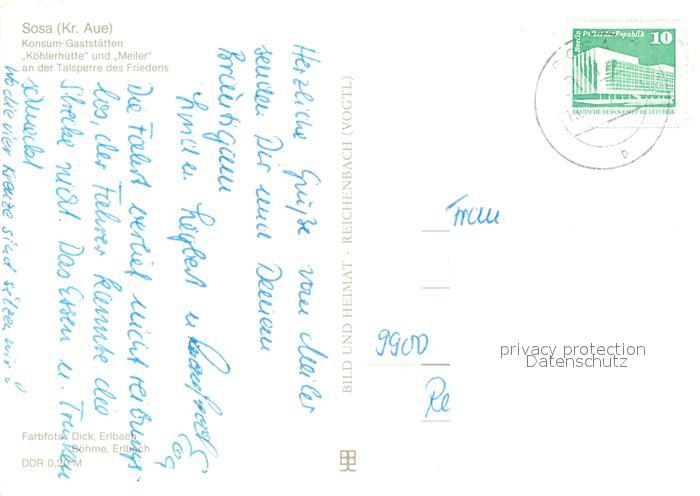 Sosa (Kr. Aue)
Konsum-Gaststätten
„Köhlerhütte" und „Meiler"
an der Talsperre des Friedens
Herzliche Grüße vom Meiler
senden Dir und Deinem
Bräutigam
Lina u. Heybert u.
Die Fahrt verlief nicht reibungs-
los, der Fahrer kannte die
Strecke nicht. Das Essen u. Trinken
schmeckt
Wo die vier Kreuze sind sitzen wir!
Farbfoto: Dick, Erlbach
Böhme, Erlbach
DDR 0,20 M
BILD UND HEIMAT · REICHENBACH (VOGTL)
Berlin Palast der Republik 10
DEUTSCHE DEMOKRATISCHE REPUBLIK
b
Frau
9900
Re
privacy protection
Datenschutz